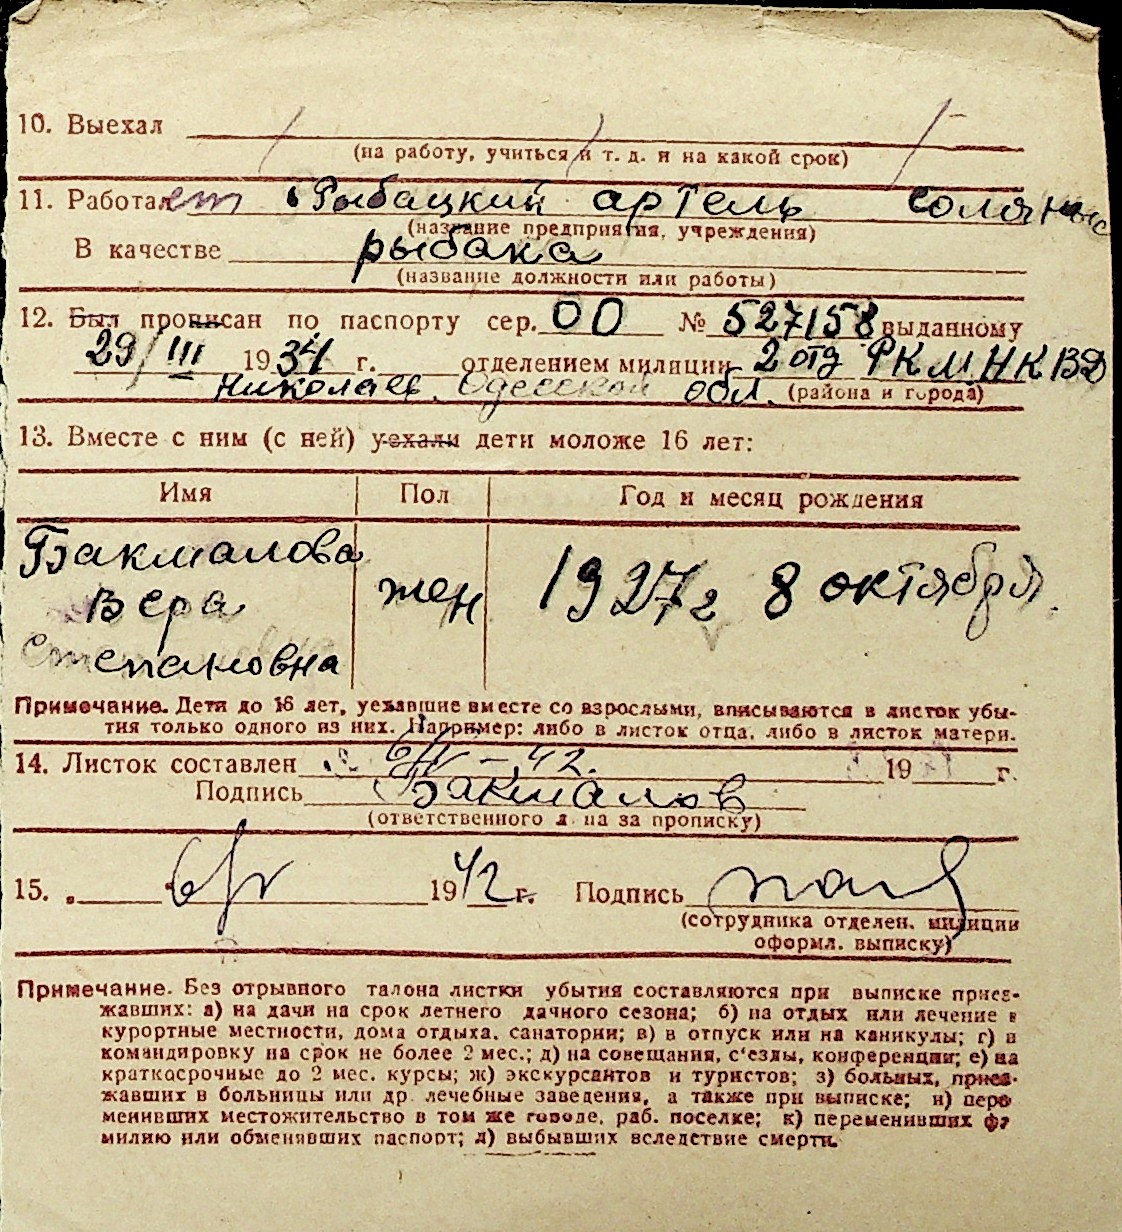 10. Выехал
(на работу, учиться и т. д. и на какой срок)
11. Работает Рыбацкий артель Соляные
(название предприятия, учреждения)
В качестве рыбака
(название должности или работы)
12. Был прописан по паспорту сер. 00 № 527158 выданному
29/III 1934 г. отделением милиции 2 отд РКМ НКВД
Николаев. Одесской обл. (района и города)
13. Вместе с ним (с ней) уехали дети моложе 16 лет:
Имя Пол Год и месяц рождения
Бакмалова
Вера жен 1927 г 8 октября.
Степановна
Примечание. Дети до 16 лет, уехавшие вместе со взрослыми, вписываются в листок убы-
тия только одного из них. Например: либо в листок отца, либо в листок матери.
14. Листок составлен 6/IV - 42. 19 г.
Подпись Бакмалов
(ответственного л на за прописку)
15. 6/IV 1942 г. Подпись
(сотрудника отделен. милиции
оформл. выписку)
Примечание. Без отрывного талона листки убытия составляются при выписке приез-
жавших: а) на дачи на срок летнего дачного сезона; б) на отдых или лечение в
курортные местности, дома отдыха, санатории; в) в отпуск или на каникулы; г) в
командировку на срок не более 2 мес.; д) на совещания, с'езды, конференции; е) на
краткосрочные до 2 мес. курсы; ж) экскурсантов и туристов; з) больных, приез-
жавших в больницы или др. лечебные заведения, а также при выписке; и) пере
менивших местожительство в том же городе, раб. поселке; к) переменивших фа
милию или обменявших паспорт; л) выбывших вследствие смерти.